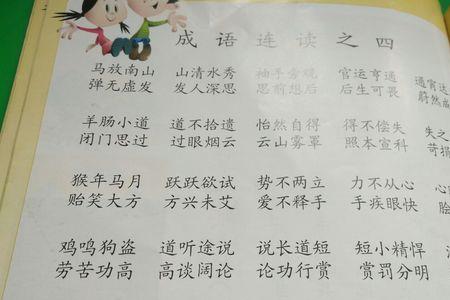 成语连读之四
马放南山 山清水秀 袖手旁观 官运亨通
弹无虚发 发人深思 思前想后 后生可畏 蔚然成
羊肠小道 道不拾遗 怡然自得 得不偿失 失之
闭门思过 过眼烟云 云山雾罩 照本宣科 苛捐
猴年马月 跃跃欲试 势不两立 力不从心 心
贻笑大方 方兴未艾 爱不释手 手疾眼快 脍
鸡鸣狗盗 道听途说 说长道短 短小精悍
劳苦功高 高谈阔论 论功行赏 赏罚分明